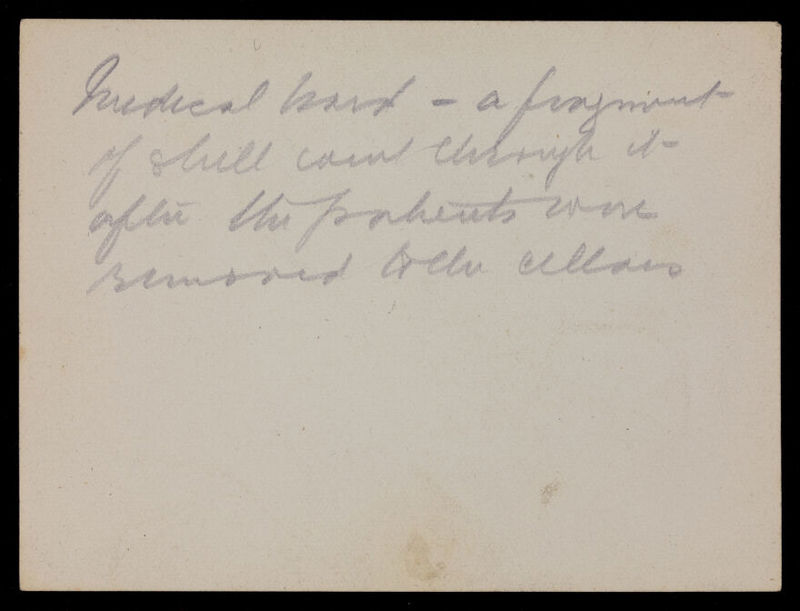 Medical ward - a fragment
of shell came through it
after the patients were
removed to the cellars